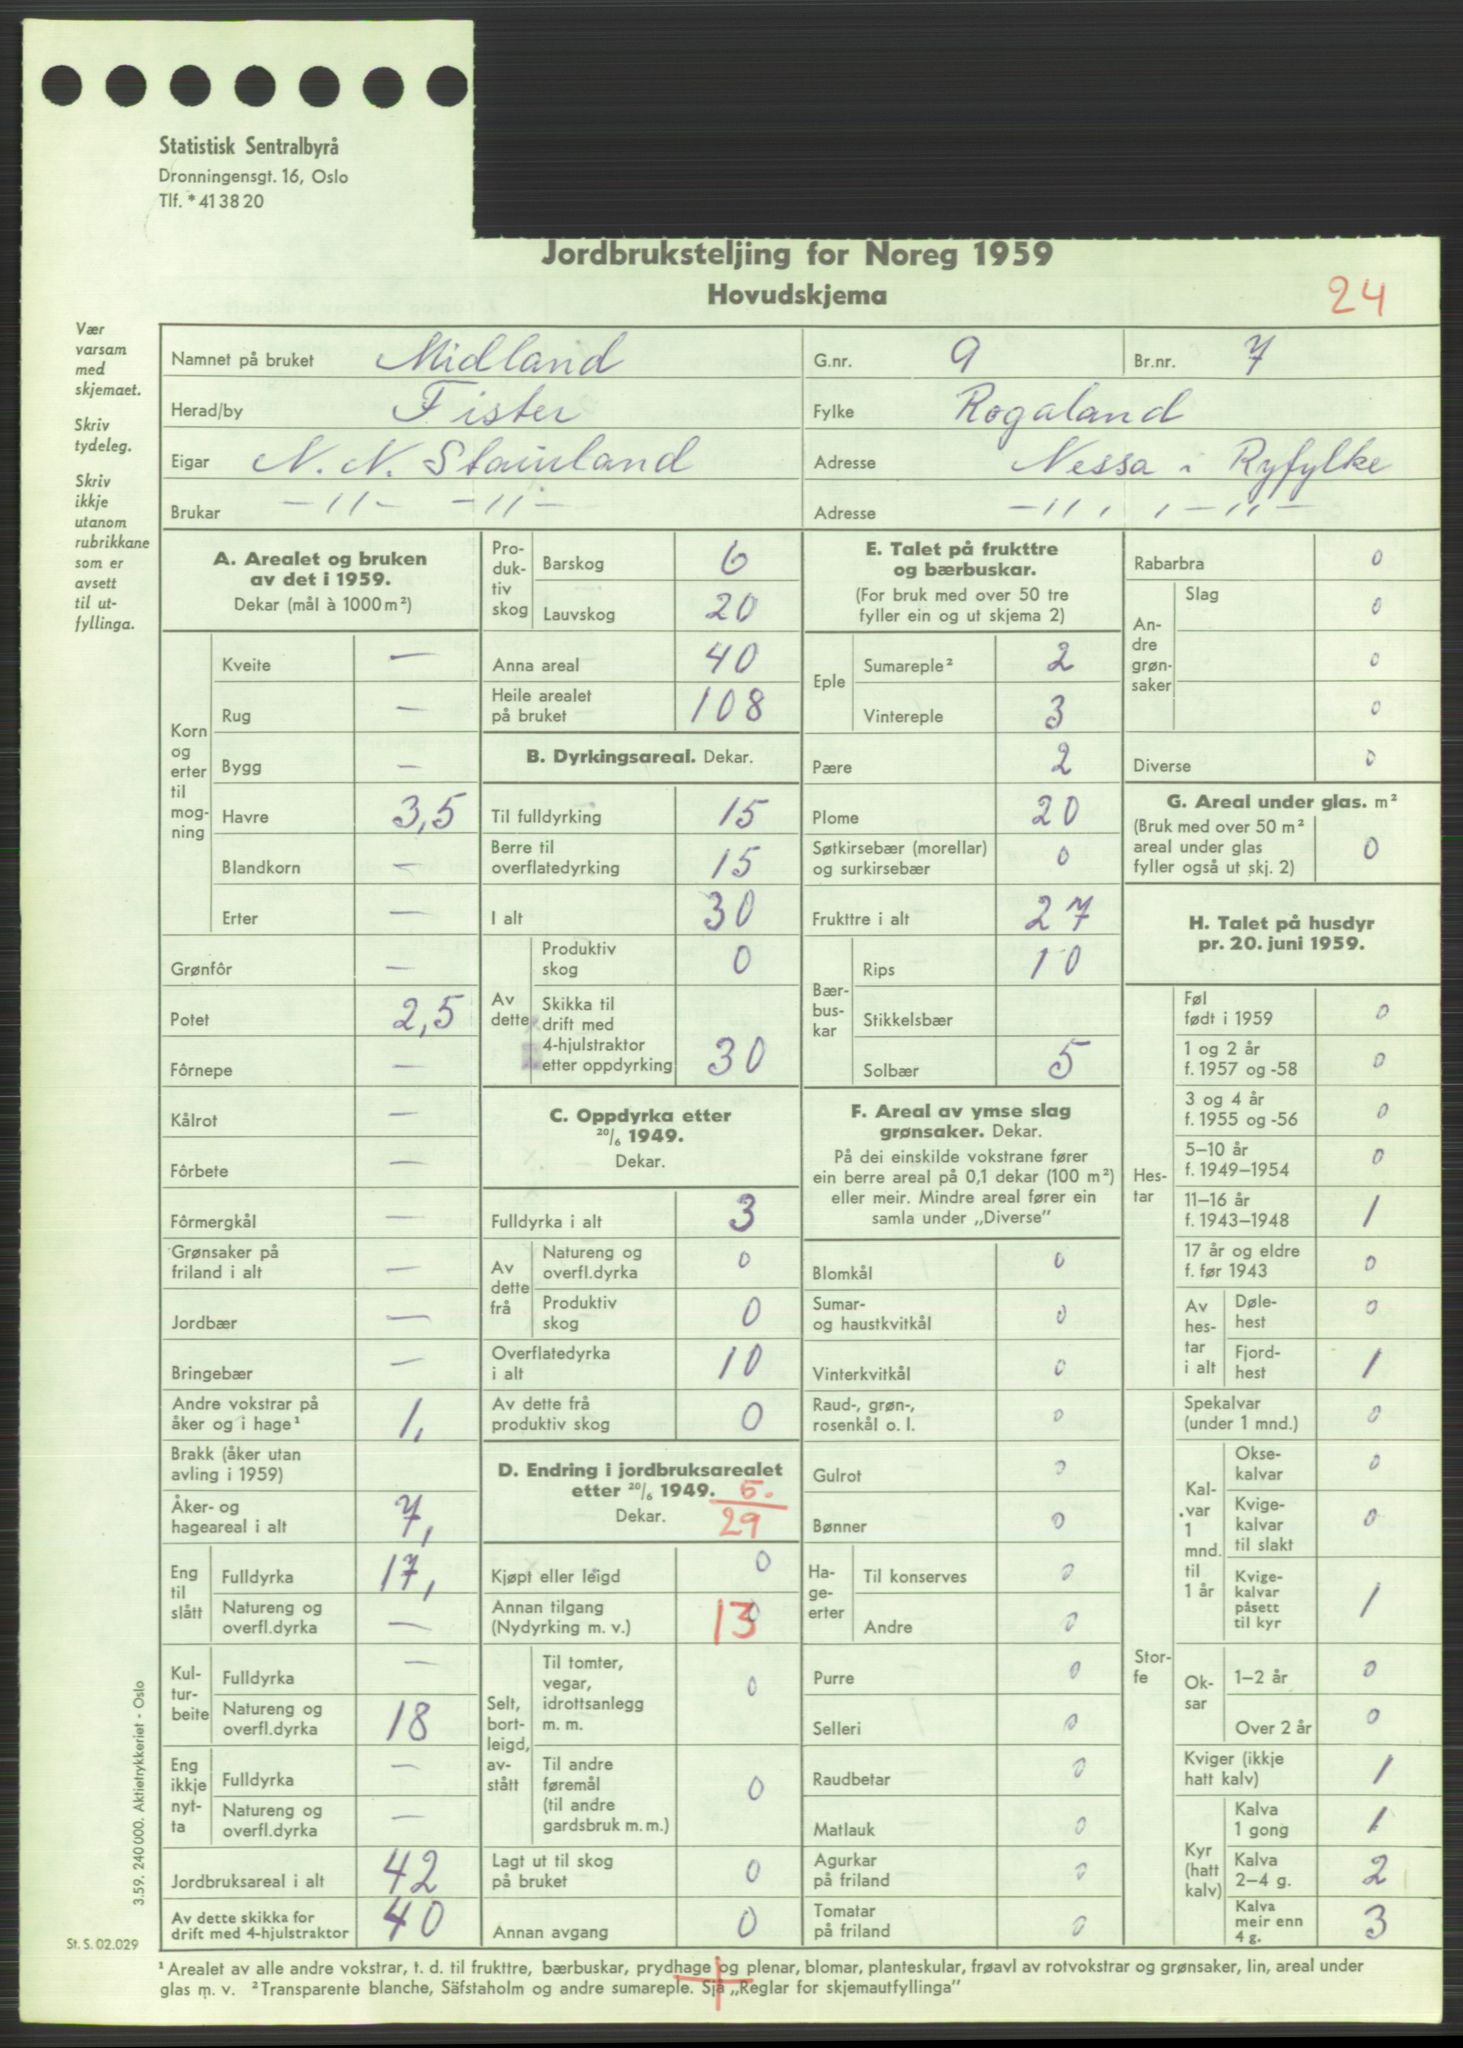 Statistisk Sentralbyrå
Dronningensgt. 16, Oslo
Tlf. * 41 38 20
Jordbruksteljing for Noreg 1959
Hovudskjema
24
Vær
varsam
med
skjemaet.
Skriv
tydeleg.
Skriv
ikkje
utanom
rubrikkane
som er
avsett
til ut-
fyllinga.
Namnet på bruket Midland G.nr. 9 Br.nr. 7
Herad/by Fister Fylke Rogaland
Eigar N. N. Stainland Adresse Nessa i Ryfylke
Brukar –〃– –〃– Adresse –〃– –〃–
A. Arealet og bruken
av det i 1959.
Dekar (mål à 1000 m²)
Korn og erter til mog-ning
Kveite —
Rug —
Bygg —
Havre 3,5
Blandkorn —
Erter —
Grønfôr —
Potet 2,5
Fôrnepe —
Kålrot —
Fôrbete —
Fôrmergkål —
Grønsaker på
friland i alt —
Jordbær —
Bringebær —
Andre vokstrar på
åker og i hage¹ 1,
Brakk (åker utan
avling i 1959)
Åker- og
hageareal i alt 7,
Eng til slått
Fulldyrka 17,
Natureng og
overfl.dyrka —
Kul-tur-beite
Fulldyrka —
Natureng og
overfl.dyrka 18
Eng ikkje nyt-ta
Fulldyrka —
Natureng og
overfl.dyrka —
Jordbruksareal i alt 42
Av dette skikka for
drift med 4-hjulstraktor 40
Pro-duk-tiv skog
Barskog 6
Lauvskog 20
Anna areal 40
Heile arealet
på bruket 108
B. Dyrkingsareal. Dekar.
Til fulldyrking 15
Berre til
overflatedyrking 15
I alt 30
Av dette
Produktiv
skog 0
Skikka til
drift med
4-hjulstraktor
etter oppdyrking 30
C. Oppdyrka etter
20/6 1949.
Dekar.
Fulldyrka i alt 3
Av dette frå
Natureng og
overfl.dyrka 0
Produktiv
skog 0
Overflatedyrka
i alt 10
Av dette frå
produktiv skog 0
D. Endring i jordbruksarealet
etter 20/6 1949. 5.
Dekar. 29
Kjøpt eller leigd 0
Annan tilgang
(Nydyrking m. v.) 0 13
Selt, bort-leigd, av-stått
Til tomter,
vegar,
idrottsanlegg
m. m. 0
Til andre
føremål
(til andre
gardsbruk m. m.) 0
Lagt ut til skog
på bruket 0
Annan avgang 0
E. Talet på frukttre
og bærbuskar.
(For bruk med over 50 tre
fyller ein og ut skjema 2)
Eple
Sumareple² 2
Vintereple 3
Pære 2
Plome 20
Søtkirsebær (morellar)
og surkirsebær 0
Frukttre i alt 27
Bær-bus-kar
Rips 10
Stikkelsbær
Solbær 5
F. Areal av ymse slag
grønsaker. Dekar.
På dei einskilde vokstrane fører
ein berre areal på 0,1 dekar (100 m²)
eller meir. Mindre areal fører ein
samla under „Diverse"
Blomkål 0
Sumar-
og haustkvitkål 0
Vinterkvitkål 0
Raud-, grøn-,
rosenkål o. l. 0
Gulrot 0
Bønner 0
Ha-ge-erter
Til konserves 0
Andre 0
Purre 0
Selleri 0
Raudbetar 0
Matlauk 0
Agurkar
på friland 0
Tomatar
på friland 0
Rabarbra 0
An-dre grøn-saker
Slag 0
0
0
Diverse 0
G. Areal under glas. m²
(Bruk med over 50 m²
areal under glas
fyller også ut skj. 2) 0
H. Talet på husdyr
pr. 20. juni 1959.
Hes-tar
Føl
født i 1959 0
1 og 2 år
f. 1957 og -58 0
3 og 4 år
f. 1955 og -56 0
5–10 år
f. 1949–1954 0
11–16 år
f. 1943–1948 1
17 år og eldre
f. før 1943 0
Av hes-tar i alt
Døle-
hest 0
Fjord-
hest 1
Stor-fe
Spekalvar
(under 1 mnd.) 0
Kal-var 1 mnd. til 1 år
Okse-
kalvar 0
Kvige-
kalvar
til slakt 0
Kvige-
kalvar
påsett
til kyr 1
Ok-sar
1–2 år 0
Over 2 år 0
Kviger (ikkje
hatt kalv) 1
Kyr (hatt kalv)
Kalva
1 gong 1
Kalva
2–4 g. 2
Kalva
meir enn
4 g. 3
3.59. 240 000. Aktietrykkeriet - Oslo
St. S. 02.029
¹ Arealet av alle andre vokstrar, t. d. til frukttre, bærbuskar, prydhage og plenar, blomar, planteskular, frøavl av rotvokstrar og grønsaker, lin, areal under
glas m. v. ² Transparente blanche, Säfstaholm og andre sumareple. Sjå „Reglar for skjemautfyllinga"